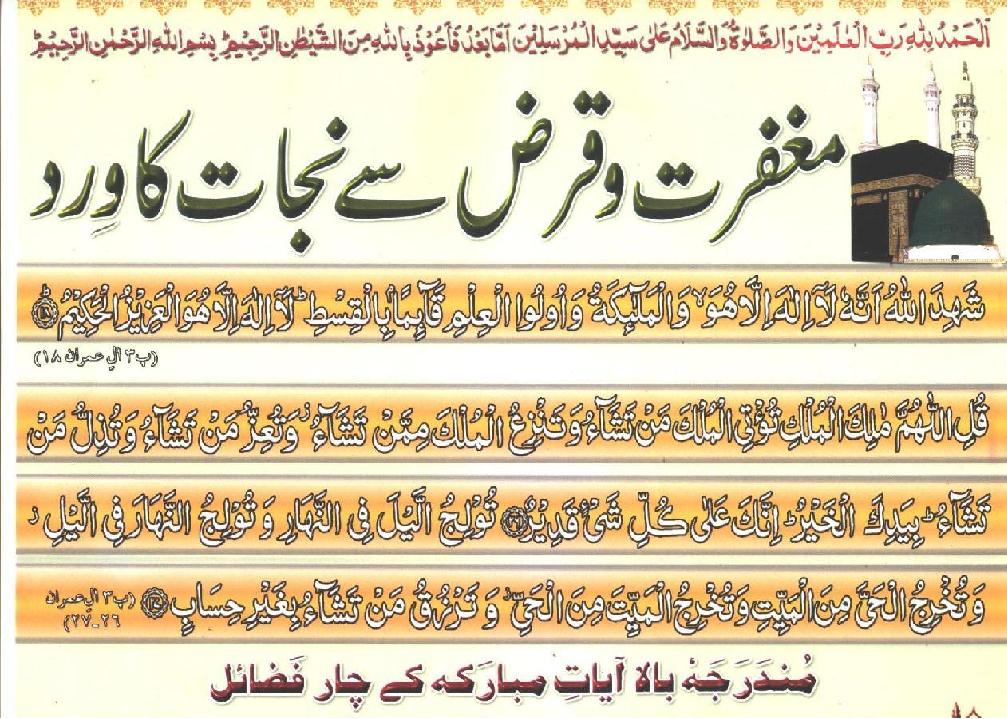 اَلْحَمْدُ لِلّٰهِ رَبِّ الْعٰلَمِیْنَ وَالصَّلٰوةُ وَالسَّلَامُ عَلٰی سَیِّدِ الْمُرْسَلِیْنَ اَمَّا بَعْدُ فَاَعُوْذُ بِاللّٰهِ مِنَ الشَّیْطٰنِ الرَّجِیْمِؕ بِسْمِ اللّٰهِ الرَّحْمٰنِ الرَّحِیْمِؕ
مغفرت و قرض سے نجات کا وِرد
شَهِدَ اللّٰهُ اَنَّهٗ لَاۤ اِلٰهَ اِلَّا هُوَۙ وَالْمَلٰٓىِٕكَةُ وَ اُولُوا الْعِلْمِ قَآىِٕمًۢا بِالْقِسْطِؕ لَاۤ اِلٰهَ اِلَّا هُوَ الْعَزِیْزُ الْحَكِیْمُؕ ﴿۱۸﴾
(پ۳ اٰلِ عمران ۱۸)
قُلِ اللّٰهُمَّ مٰلِكَ الْمُلْكِ تُؤْتِی الْمُلْكَ مَنْ تَشَآءُ وَ تَنْزِعُ الْمُلْكَ مِمَّنْ تَشَآءُ٘ وَ تُعِزُّ مَنْ تَشَآءُ وَ تُذِلُّ مَنْ
تَشَآءُؕ بِیَدِكَ الْخَیْرُؕ اِنَّكَ عَلٰی كُلِّ شَیْءٍ قَدِیْرٌ ﴿۲۶﴾ تُوْلِجُ الَّیْلَ فِی النَّهَارِ وَ تُوْلِجُ النَّهَارَ فِی الَّیْلِ٘
وَ تُخْرِجُ الْحَیَّ مِنَ الْمَیِّتِ وَ تُخْرِجُ الْمَیِّتَ مِنَ الْحَیِّ٘ وَ تَرْزُقُ مَنْ تَشَآءُ بِغَیْرِ حِسَابٍ ﴿۲۷﴾ (پ۳ اٰلِ عمران
۲۶۔۲۷)
مُندَرَجَہ بالا آیاتِ مبارَکہ کے چار فَضائل